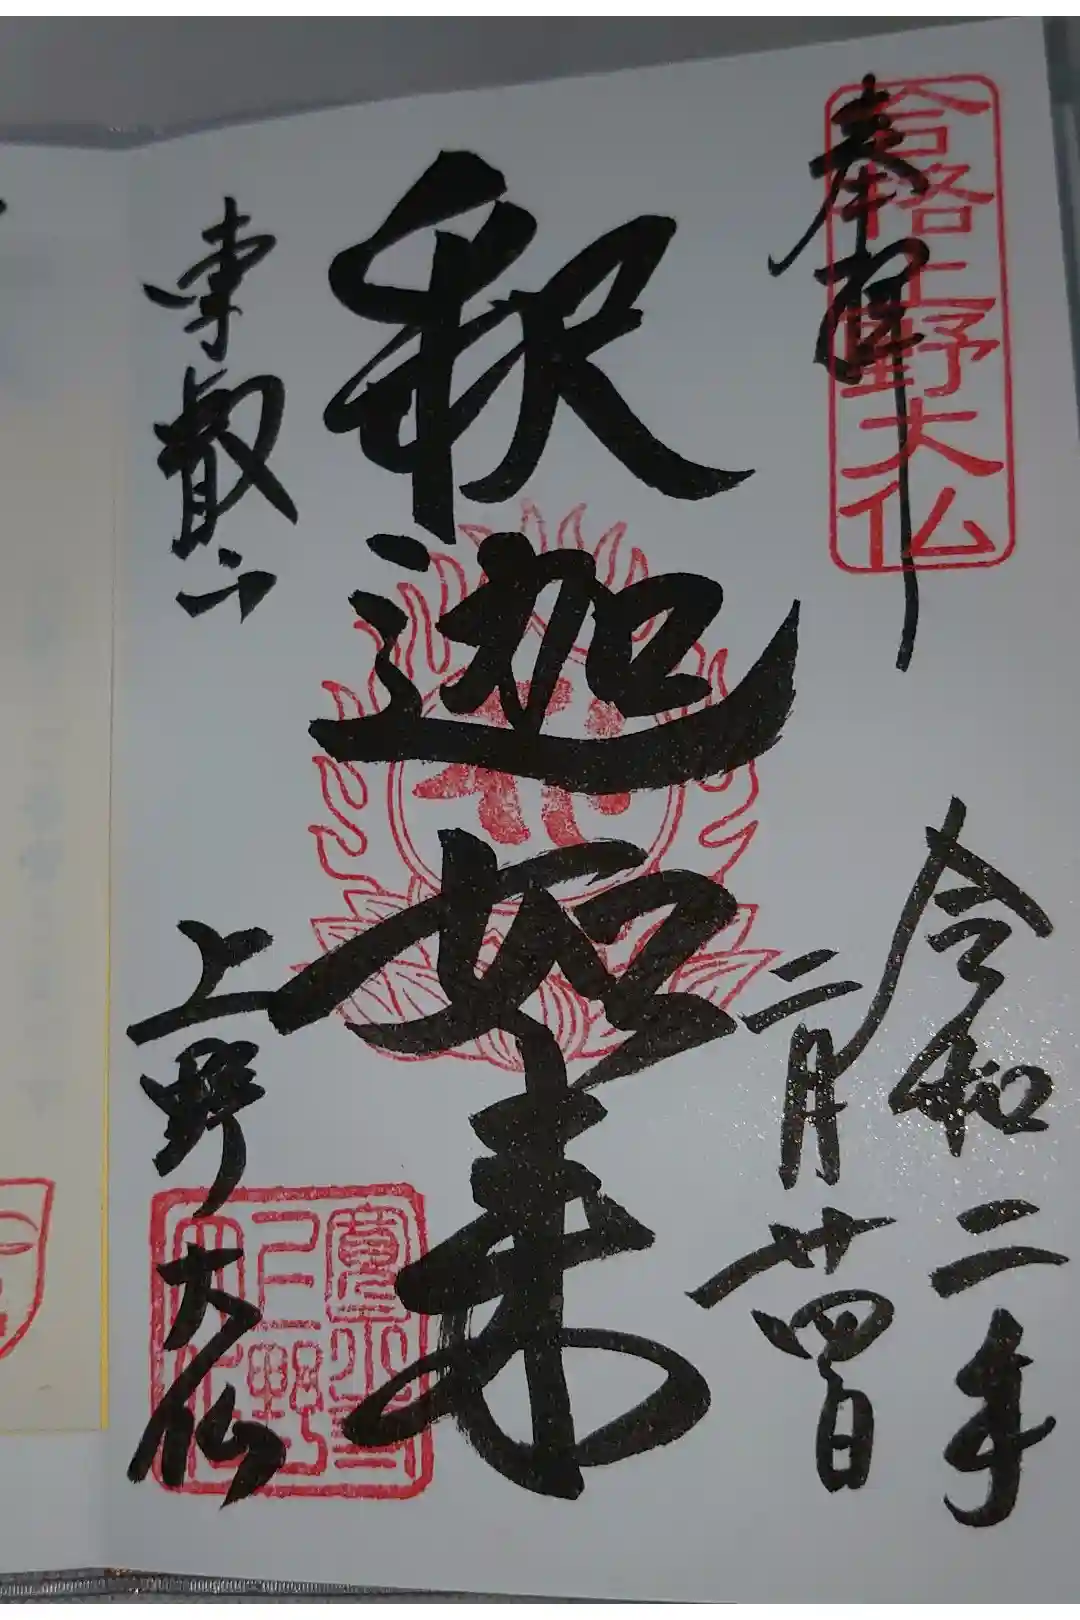 合格上野大仏
奉拝
令和二年
二月廿四日
釈迦如来
東叡山
上野大仏